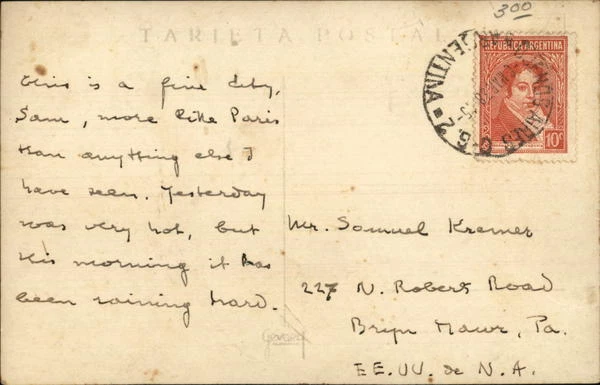 300
TARJETA POSTAL
REPUBLICA ARGENTINA
10¢
BUENOS AIRES
ARGENTINA
This is a fine city,
Sam, more like Paris
than anything else I
have seen. Yesterday
was very hot, but
this morning it has
been raining hard.
Mr. Samuel Kremer
227 N. Roberts Road
Bryn Mawr, Pa.
EE. UU. de N.A.